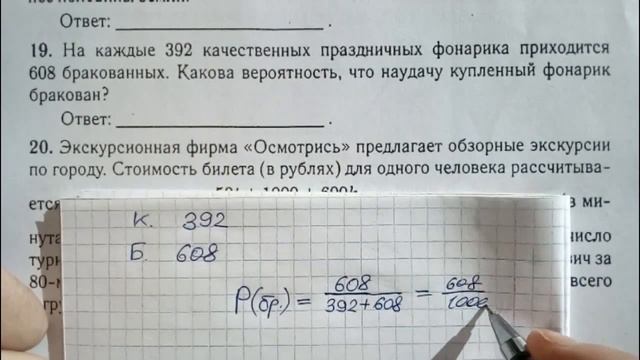 Ответ: ________ .
19. На каждые 392 качественных праздничных фонарика приходится
608 бракованных. Какова вероятность, что наудачу купленный фонарик
бракован?
Ответ: ________ .
20. Экскурсионная фирма «Осмотрись» предлагает обзорные экскурсии
по городу. Стоимость билета (в рублях) для одного человека рассчитыва-
ется в ми-
нута число
тури вич за
80-м всего
гру
К. 392
Б. 608
P(бр.) = 608/392+608 = 608/1000